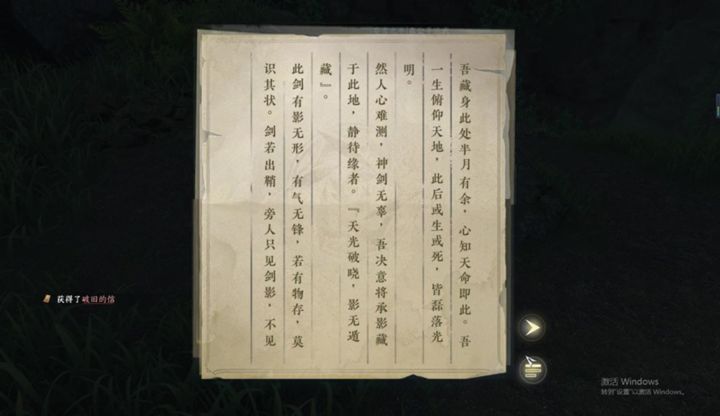 吾藏身此处半月有余，心知天命即此。吾
一生俯仰天地，此后或生或死，皆磊落光
明。
然人心难测，神剑无辜，吾决意将承影藏
于此地，静待缘者。『天光破晓，影无遁
藏』。
此剑有影无形，有气无锋，若有物存，莫
识其状。剑若出鞘，旁人只见剑影，不见
获得了破旧的信
激活 Windows
转到"设置"以激活 Windows。